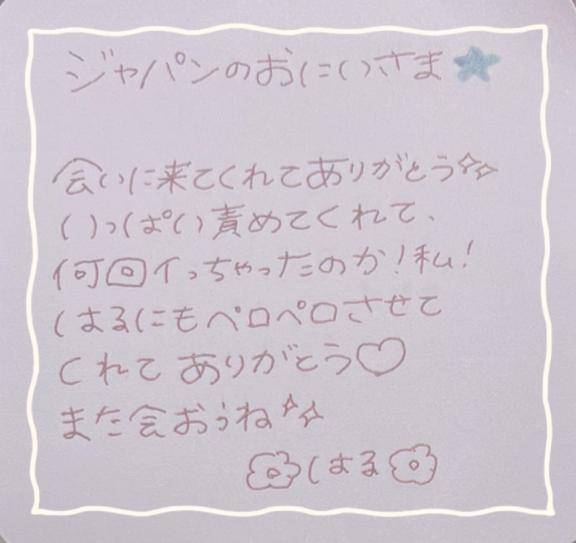 ジャパンのおにいさま
会いに来てくれてありがとう
いっぱい責めてくれて、
何回イっちゃったのか!私!
はるにもペロペロさせて
くれてありがとう♡
また会おうね
はる